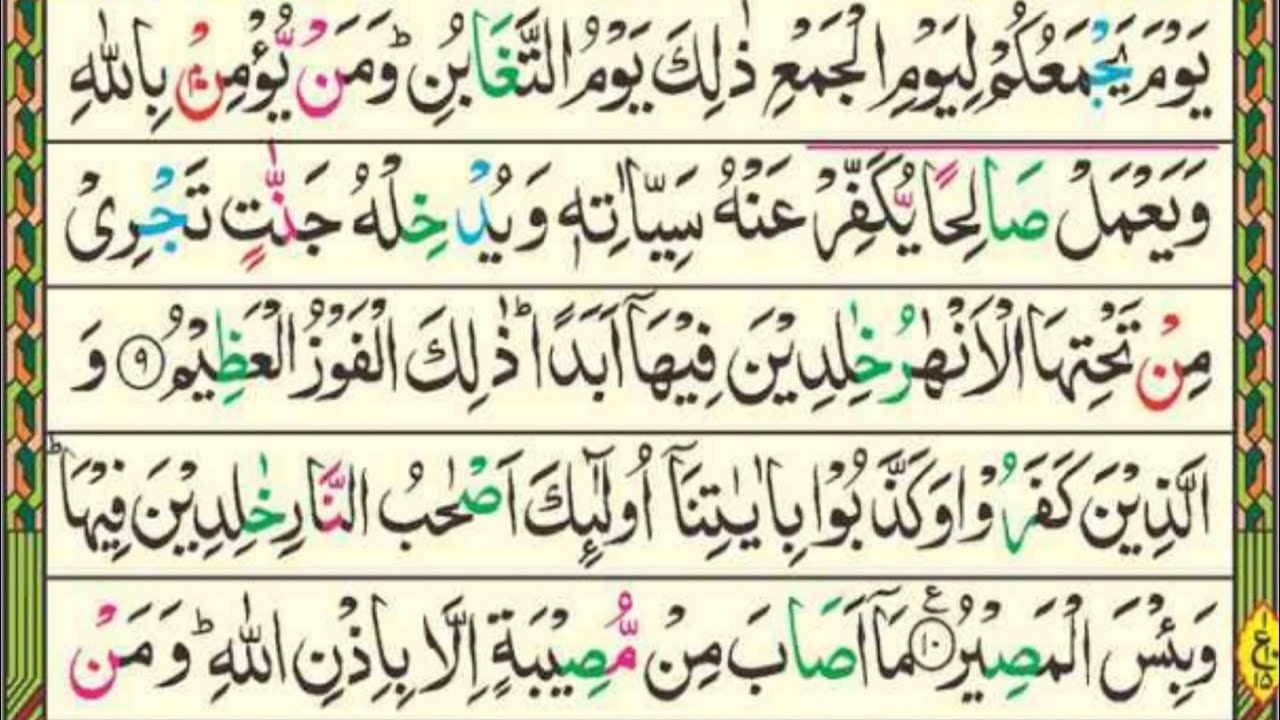 يَوْمَ يَجْمَعُكُمْ لِيَوْمِ الْجَمْعِ ذٰلِكَ يَوْمُ التَّغَابُنِ ؕ وَمَنْ يُّؤْمِنْۢ بِاللّٰهِ
وَيَعْمَلْ صَالِحًا يُّكَفِّرْ عَنْهُ سَيِّاٰتِهٖ وَيُدْخِلْهُ جَنّٰتٍ تَجْرِیْ
مِنْ تَحْتِهَا الْاَنْهٰرُ خٰلِدِيْنَ فِيْهَاۤ اَبَدًا ؕ ذٰلِكَ الْفَوْزُ الْعَظِيْمُ ۹ وَ
الَّذِيْنَ كَفَرُوْا وَكَذَّبُوْا بِاٰيٰتِنَاۤ اُولٰٓئِكَ اَصْحٰبُ النَّارِ خٰلِدِيْنَ فِيْهَا ؕ
وَبِئْسَ الْمَصِيْرُ ۱۰ ع مَاۤ اَصَابَ مِنْ مُّصِيْبَةٍ اِلَّا بِاِذْنِ اللّٰهِ ؕ وَمَنْ
۱
ع ۱۰
۱۵